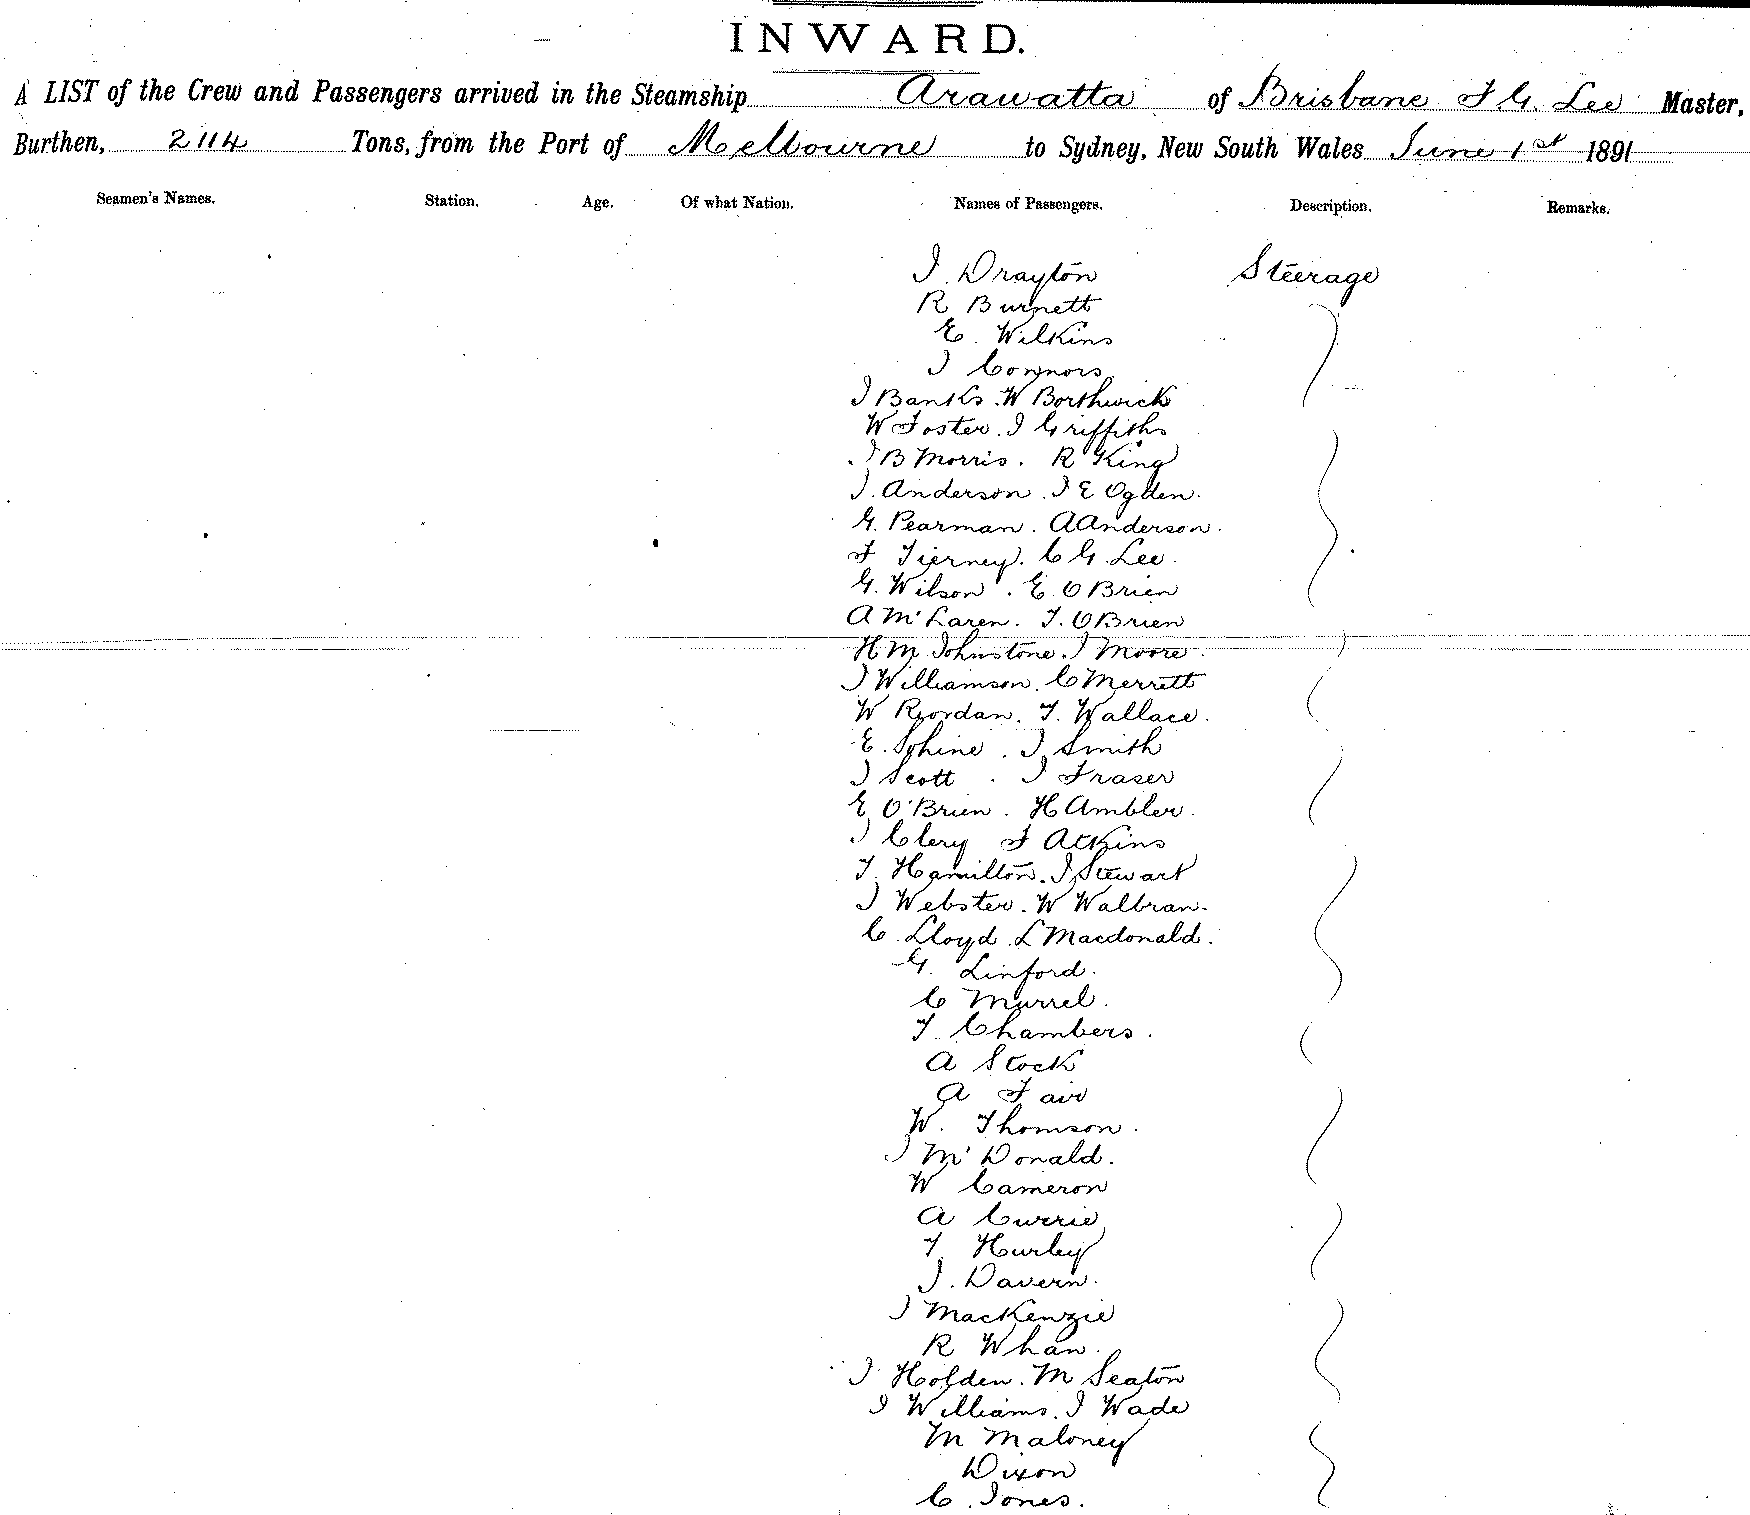 INWARD.
A LIST of the Crew and Passengers arrived in the Steamship Arawatta of Brisbane F G. Lee Master,
Burthen, 2114 Tons, from the Port of Melbourne to Sydney, New South Wales June 1st 1891
Seamen's Names. Station. Age. Of what Nation. Names of Passengers. Description. Remarks.
J. Drayton Steerage
R Burnett
E. Wilkins
J Connors
J Banks. W Borthwick
W Foster. J Griffiths
J B Morris. R King
J. Anderson. J E Ogden.
G. Pearman. A Anderson.
F Tierney. C G Lee.
G. Wilson. E. O Brien
A McLaren. T. O Brien
H M Johnstone. J Moore.
J Williamson. C Merrett
W Riordan. T. Wallace.
E. Sphine. J Smith
J Scott. J Fraser
E O'Brien. H Ambler.
J Clery F Atkins
T. Hamilton. J Stewart
J Webster. W Walbran.
C. Lloyd. L Macdonald.
G. Linford.
C Murrel.
T Chambers.
A Stock
A Fair
W. Thomson.
J McDonald.
W Cameron
A Currie
T. Hurley
J. Davern.
J MacKenzie
R Whan.
J Holden. M Seaton
J Williams. J Wade
M Maloney
Dixon
C. Jones.